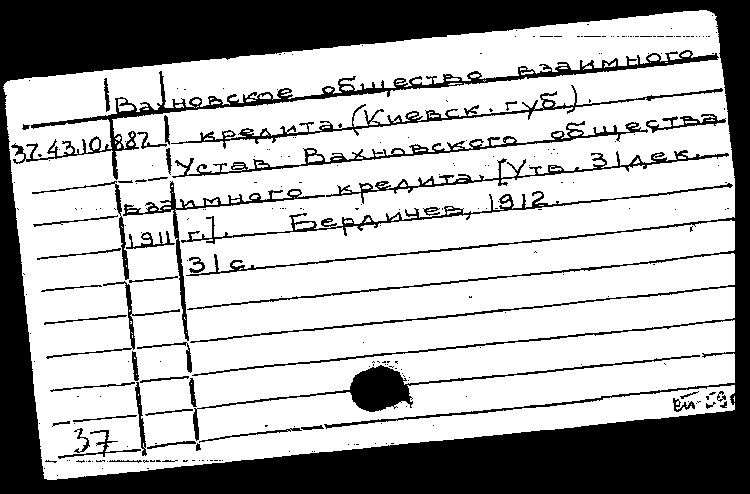 Вахновское общество взаимного
37.43.10.887 кредита. (Киевск. губ.).
Устав Вахновского общества
взаимного кредита. [Утв. 31 дек.
1911 г.]. Бердичев, 1912.
31 с.
37